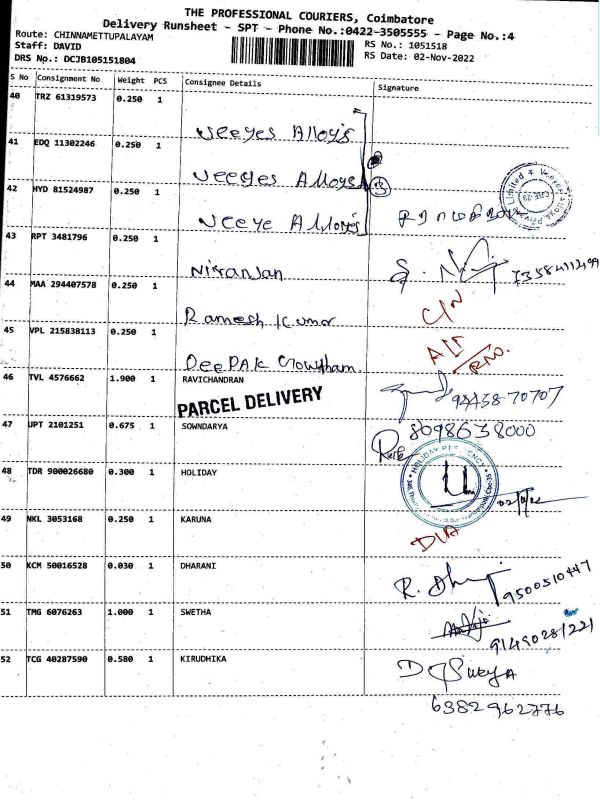 THE PROFESSIONAL COURIERS, Coimbatore
Delivery Runsheet - SPT - Phone No.:0422-3505555 - Page No.:4
Route: CHINNAMETTUPALAYAM RS No.: 1051518
Staff: DAVID RS Date: 02-Nov-2022
DRS No.: DCJB105151804
S No Consignment No Weight PCS Consignee Details Signature
40 TRZ 61319573 0.250 1 Veeyes Alloys
41 EDQ 11302246 0.250 1 Veeyes Alloys
42 HYD 81524987 0.250 1 Veeye Alloys
43 RPT 3481796 0.250 1 Niranjan
44 MAA 294407578 0.250 1 Ramesh Kumar C/N
45 VPL 215838113 0.250 1 Deepak Gowtham
46 TVL 4576662 1.900 1 RAVICHANDRAN 94438-70707
PARCEL DELIVERY
47 UPT 2101251 0.675 1 SOWNDARYA 8098638000
48 TDR 900026680 0.300 1 HOLIDAY
49 NKL 3053168 0.250 1 KARUNA D/A
50 KCM 50016528 0.030 1 DHARANI 9500510447
51 TMG 6076263 1.000 1 SWETHA
52 TCG 40287590 0.580 1 KIRUDHIKA
6382962776